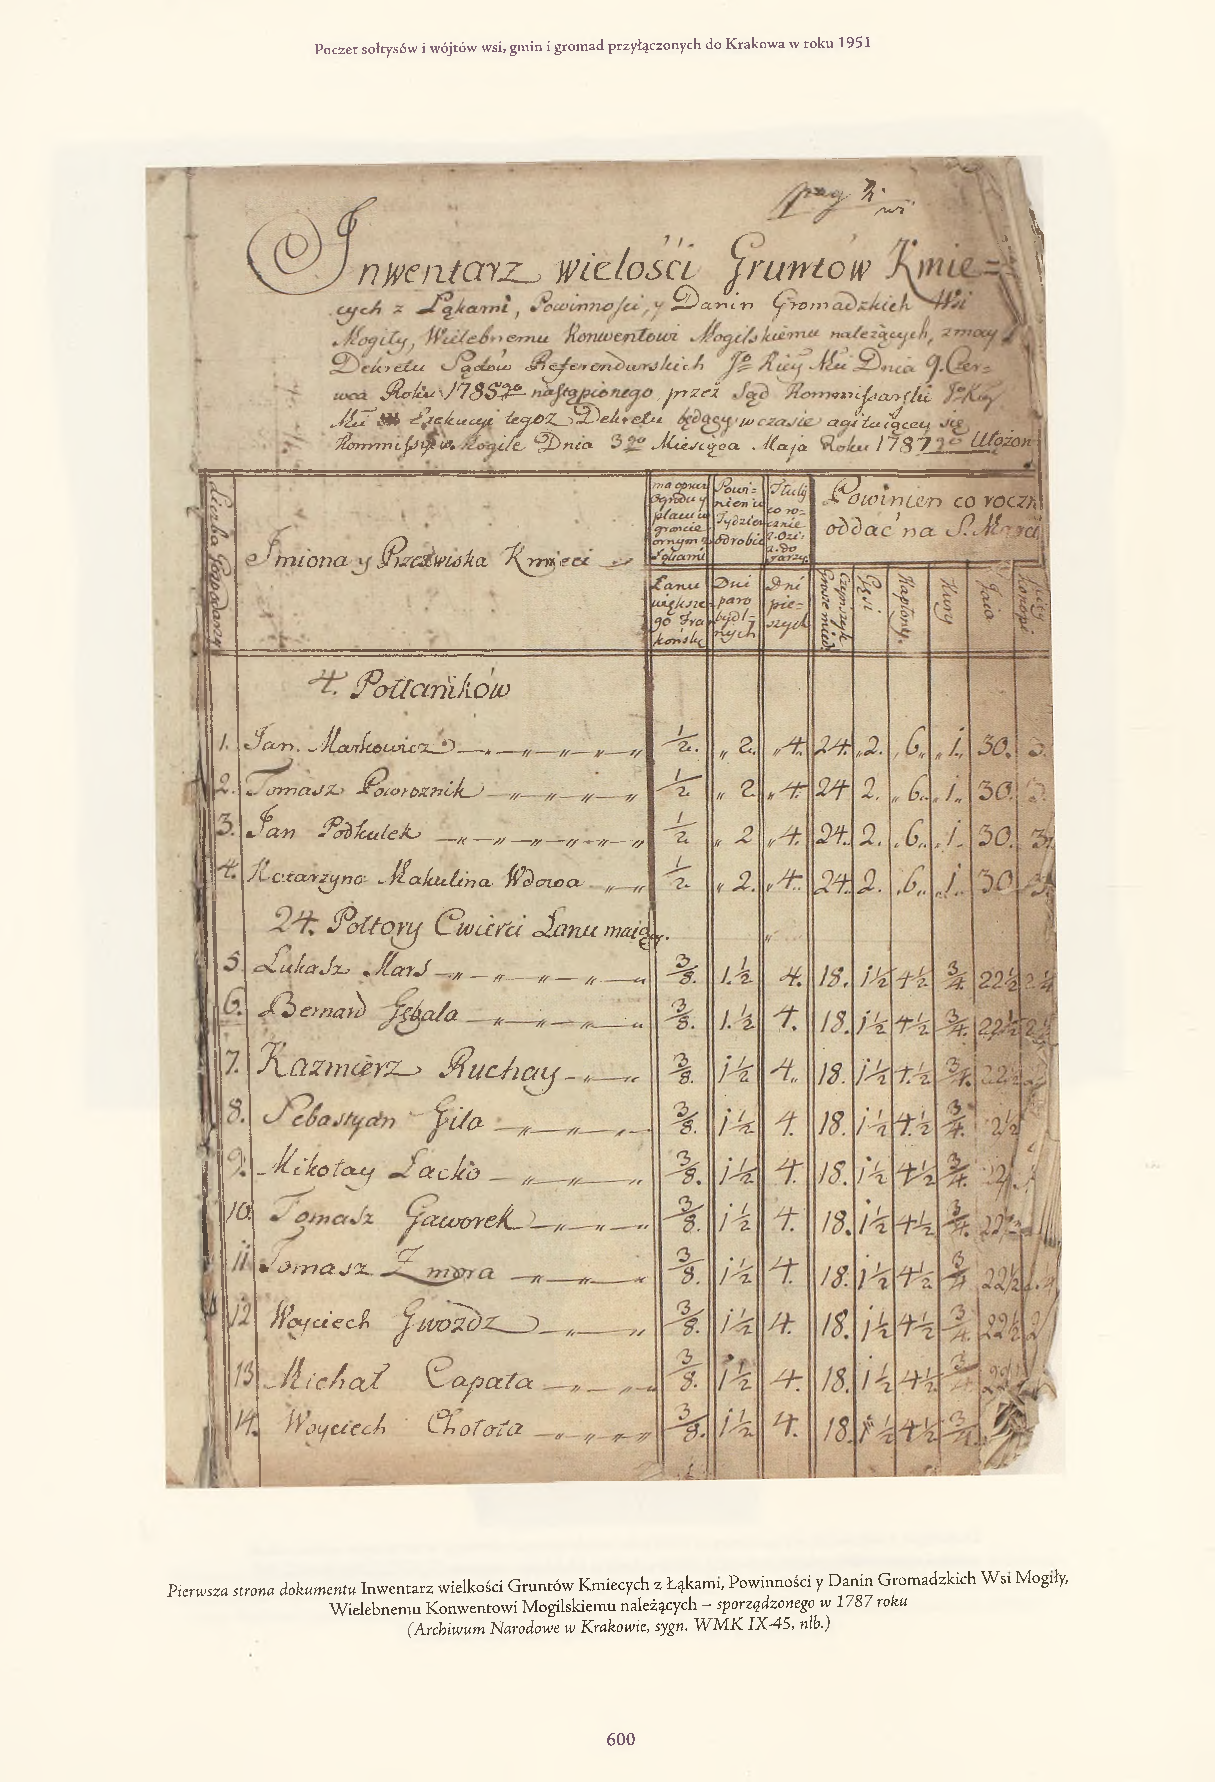 Poczet sołtysów i wójtów wsi, gmin i gromad przyłączonych do Krakowa w roku 1951
pag
Inwentarz wielości Gruntów Kmie=
cych z Łąkami, Powinności, y Danin Gromadzkich Wsi
Mogiły, Wielebnemu Konwentowi Mogilskiemu należących, z mocy
Dekretu Sądów Referendarskich Jo Kicy Mci Dnia 9. Czer=
wca Roku 1785go nastąpionego przez Sąd Kommissarski
Exekucyi tegoż Dekretu będący w czasie agituiącey się
Kommissyi w Mogile Dnia 3go Miesiąca Maja Roku 1787go Ułożon
Liczba Gospodarzy
Imiona y Przezwiska Kmieci
ma oprucz ogrodu y placu w gruncie ornym z Łąkami
Powi=nien w Tydzień odrobić
Tłuki co ro=cznie
Powinien co roczn
oddać na S. Marci
Łanu większego Frankoński
Dni paro bydl=nych
Dni pie=szych
Czynszyk Grosze mied.
Gęsi
Kapłony.
Kury
Jaia
konopi
4. Połłaników
1. Jan Markowicz — 1/2. „ 2. „ 4. 24. „ 2. „ 6„ „ 1. 30. 3.
2. Tomasz Powroznik — 1/2 „ 2. „ 4. 24 2. „ 6„ „ 1„ 30. 3.
3. Jan Podkulek — 1/2 „ 2 „ 4. 24. 2. „ 6„ „ 1. 30. 3.
4. Katarzyna Makulina Wdowa „ 1/2. „ 2. „ 4. 24. 2. „ 6„ „ 1. 30 3.
24. Połtory Cwierci Łanu maią.
5. Łukasz Marś — 3/8. 1.1/2 4. 18. 1 1/2 4 1/2 3/4. 22 1/2 2 1/4
6. Bernard Gębala — 3/8. 1.1/2 4. 18. 1 1/2 4 1/2 3/4. 22 1/2
7. Kazmierz Ruchay — 3/8. 1 1/2 4„ 18. 1 1/2 4.1/2 3/4. 22 1/2
8. Sebastyan Gila — 3/8. 1 1/2 4. 18. 1 1/2 4.1/2 3/4.
9. Mikołay Łacko — 3/8. 1 1/2 4. 18. 1 1/2 4 1/2 3/4.
10. Tomasz Gaworek — 3/8. 1 1/2 4. 18. 1 1/2 4 1/2 3/4. 22 1/2
11 Tomasz Zmora — 3/8. 1 1/2 4. 18. 1 1/2 4 1/2 3/4 22 1/2
12 Woyciech Gwozdz — 3/8. 1 1/2 4. 18. 1 1/2 4 1/2 3/4. 22 1/2
13 Michał Capała — 3/8. 1 1/2 4. 18. 1 1/2 4 1/2 3/4
14. Woyciech Chołota — 3/8. 1 1/2 4. 18. 1 1/2 4 1/2 3/4.
Pierwsza strona dokumentu Inwentarz wielkości Gruntów Kmiecych z Łąkami, Powinności y Danin Gromadzkich Wsi Mogiły,
Wielebnemu Konwentowi Mogilskiemu należących – sporządzonego w 1787 roku
(Archiwum Narodowe w Krakowie, sygn. WMK IX-45, nlb.)
600